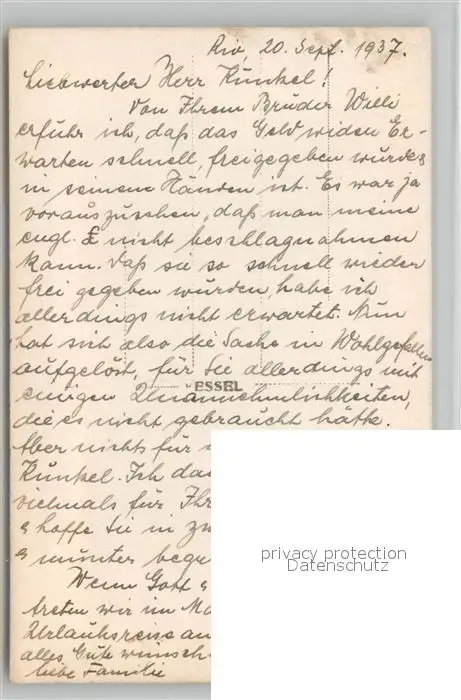 Rio, 20. Sept. 1937.
Liebwerter Herr Künkel!
Von Ihrem Bruder Willi
erfuhr ich, daß das Geld widen Er-
warten schnell, freigegeben wurde &
in seinem Händen ist. Es war ja
vorauszusehen, daß man meine
engl. £ nicht beschlagnahmen
kann. Daß sie so schnell wieder
frei gegeben würden, habe ich
allerdings nicht erwartet. Nun
hat sich also die Sache in Wohlgefallen
aufgelöst, für Sie allerdings mit
ESSEL
einigen Unannehmlichkeiten,
die es nicht gebraucht hätte.
Aber nichts für
Künkel. Ich
vielmals für Ihr
& hoffe Sie in
& munter
Wenn Gott
treten wir im
Urlaubsreise an
alles Gute
liebe Familie
privacy protection
Datenschutz